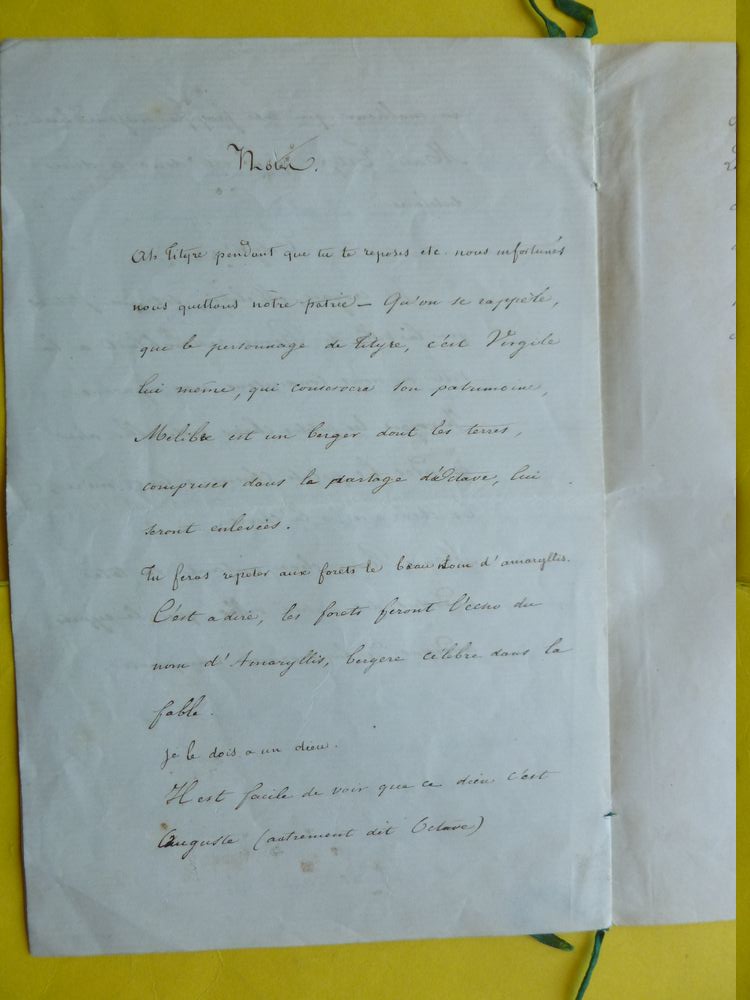 Notes.
Ah Tityre pendant que tu te reposes etc. nous infortunés
nous quittons notre patrie — Qu'on se rappèle,
que le personnage de Tityre, c'est Virgile
lui même, qui conservera son patrimoine,
Melibée est un berger dont les terres,
comprises dans le partage d'Octave, lui
seront enlevées.
Tu feras repeter aux forets le beau nom d'amaryllis.
C'est a dire, les forets feront l'echo du
nom d'Amaryllis, bergere célèbre dans la
fable.
je le dois a un dieu.
Il est facile de voir que ce dieu c'est
Auguste (autrement dit Octave)